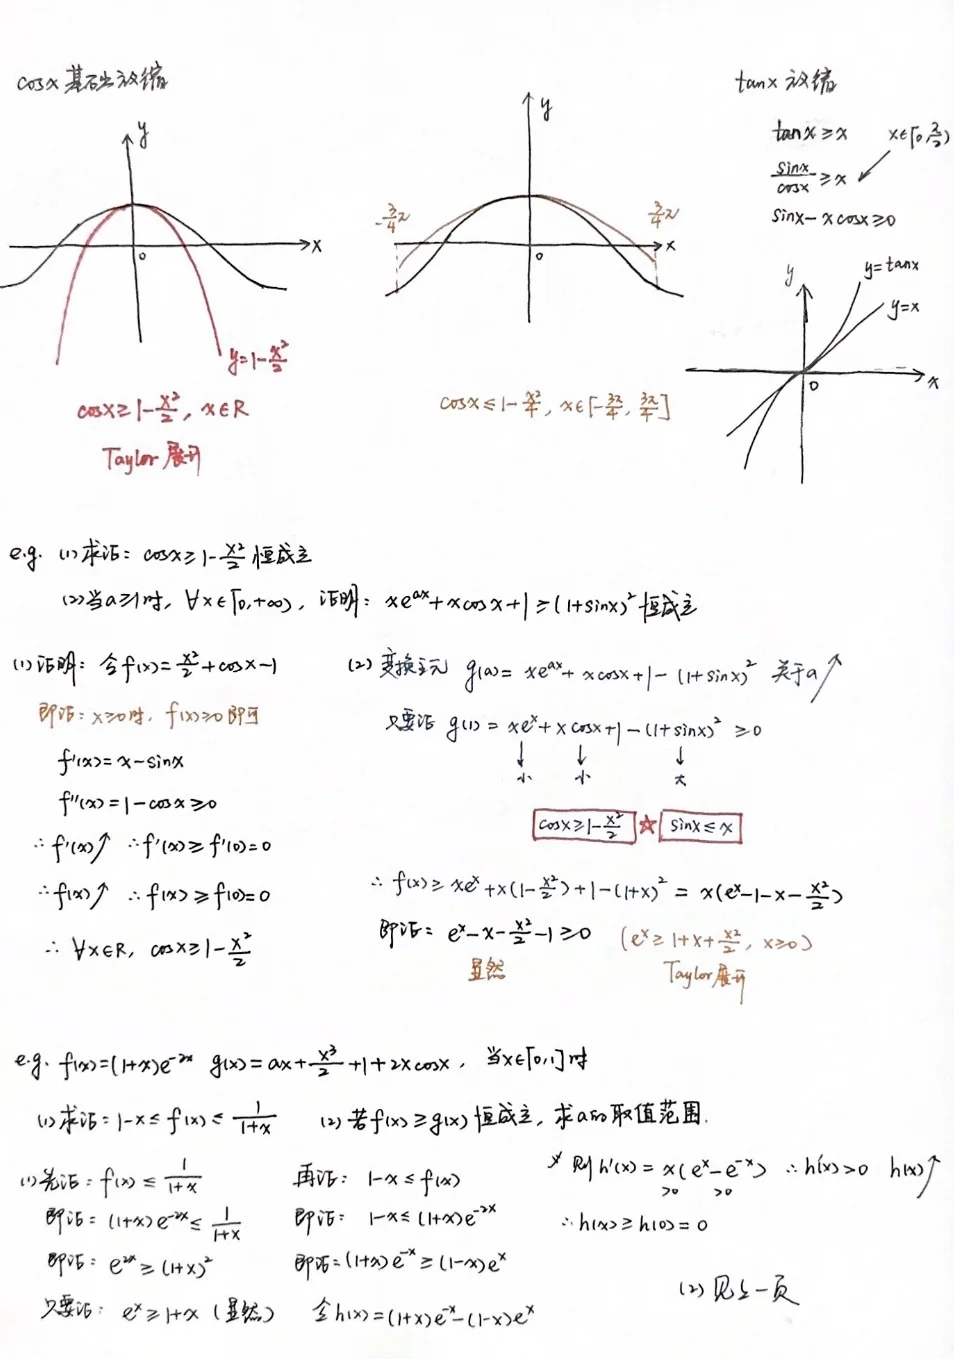 cosx 基础放缩
y
x
0
y=1-x²/2
cosx≥1-x²/2, x∈R
Taylor 展开
y
-3/4π
3/4π
x
0
cosx≤1-x²/4, x∈[-3π/4, 3π/4]
tanx 放缩
tanx≥x x∈[0,π/2)
sinx/cosx≥x
sinx-xcosx≥0
y
y=tanx
y=x
0
x
e.g. (1)求证: cosx≥1-x²/2 恒成立
(2)当a≥1时, ∀x∈[0,+∞), 证明: xe^{ax}+xcosx+1≥(1+sinx)² 恒成立
(1)证明: 令f(x)=x²/2+cosx-1
即证: x≥0时, f(x)≥0即可
f'(x)=x-sinx
f''(x)=1-cosx≥0
∴f'(x)↗ ∴f'(x)≥f'(0)=0
∴f(x)↗ ∴f(x)≥f(0)=0
∴ ∀x∈R, cosx≥1-x²/2
(2) 变换主元 g(a)=xe^{ax}+xcosx+1-(1+sinx)² 关于a↗
只要证 g(1)=xe^x+xcosx+1-(1+sinx)²≥0
↓ ↓ ↓
小 小 大
cosx≥1-x²/2 ☆ sinx≤x
∴ f(x)≥xe^x+x(1-x²/2)+1-(1+x)²=x(e^x-1-x-x²/2)
即证: e^x-x-x²/2-1≥0 (e^x≥1+x+x²/2, x≥0)
显然 Taylor展开
e.g. f(x)=(1+x)e^{-2x} g(x)=ax+x³/2+1+2xcosx, 当x∈[0,1]时
(1)求证: 1-x≤f(x)≤1/(1+x) (2)若f(x)≥g(x)恒成立, 求a的取值范围.
(1)先证: f(x)≤1/(1+x)
即证: (1+x)e^{-2x}≤1/(1+x)
即证: e^{2x}≥(1+x)²
只要证: e^x≥1+x (显然)
再证: 1-x≤f(x)
即证: 1-x≤(1+x)e^{-2x}
即证: (1+x)e^{-x}≥(1-x)e^x
令h(x)=(1+x)e^{-x}-(1-x)e^x
则h'(x)=x(e^x-e^{-x}) ∴h'(x)>0 h(x)↗
>0 >0
∴h(x)≥h(0)=0
(2)见上一页